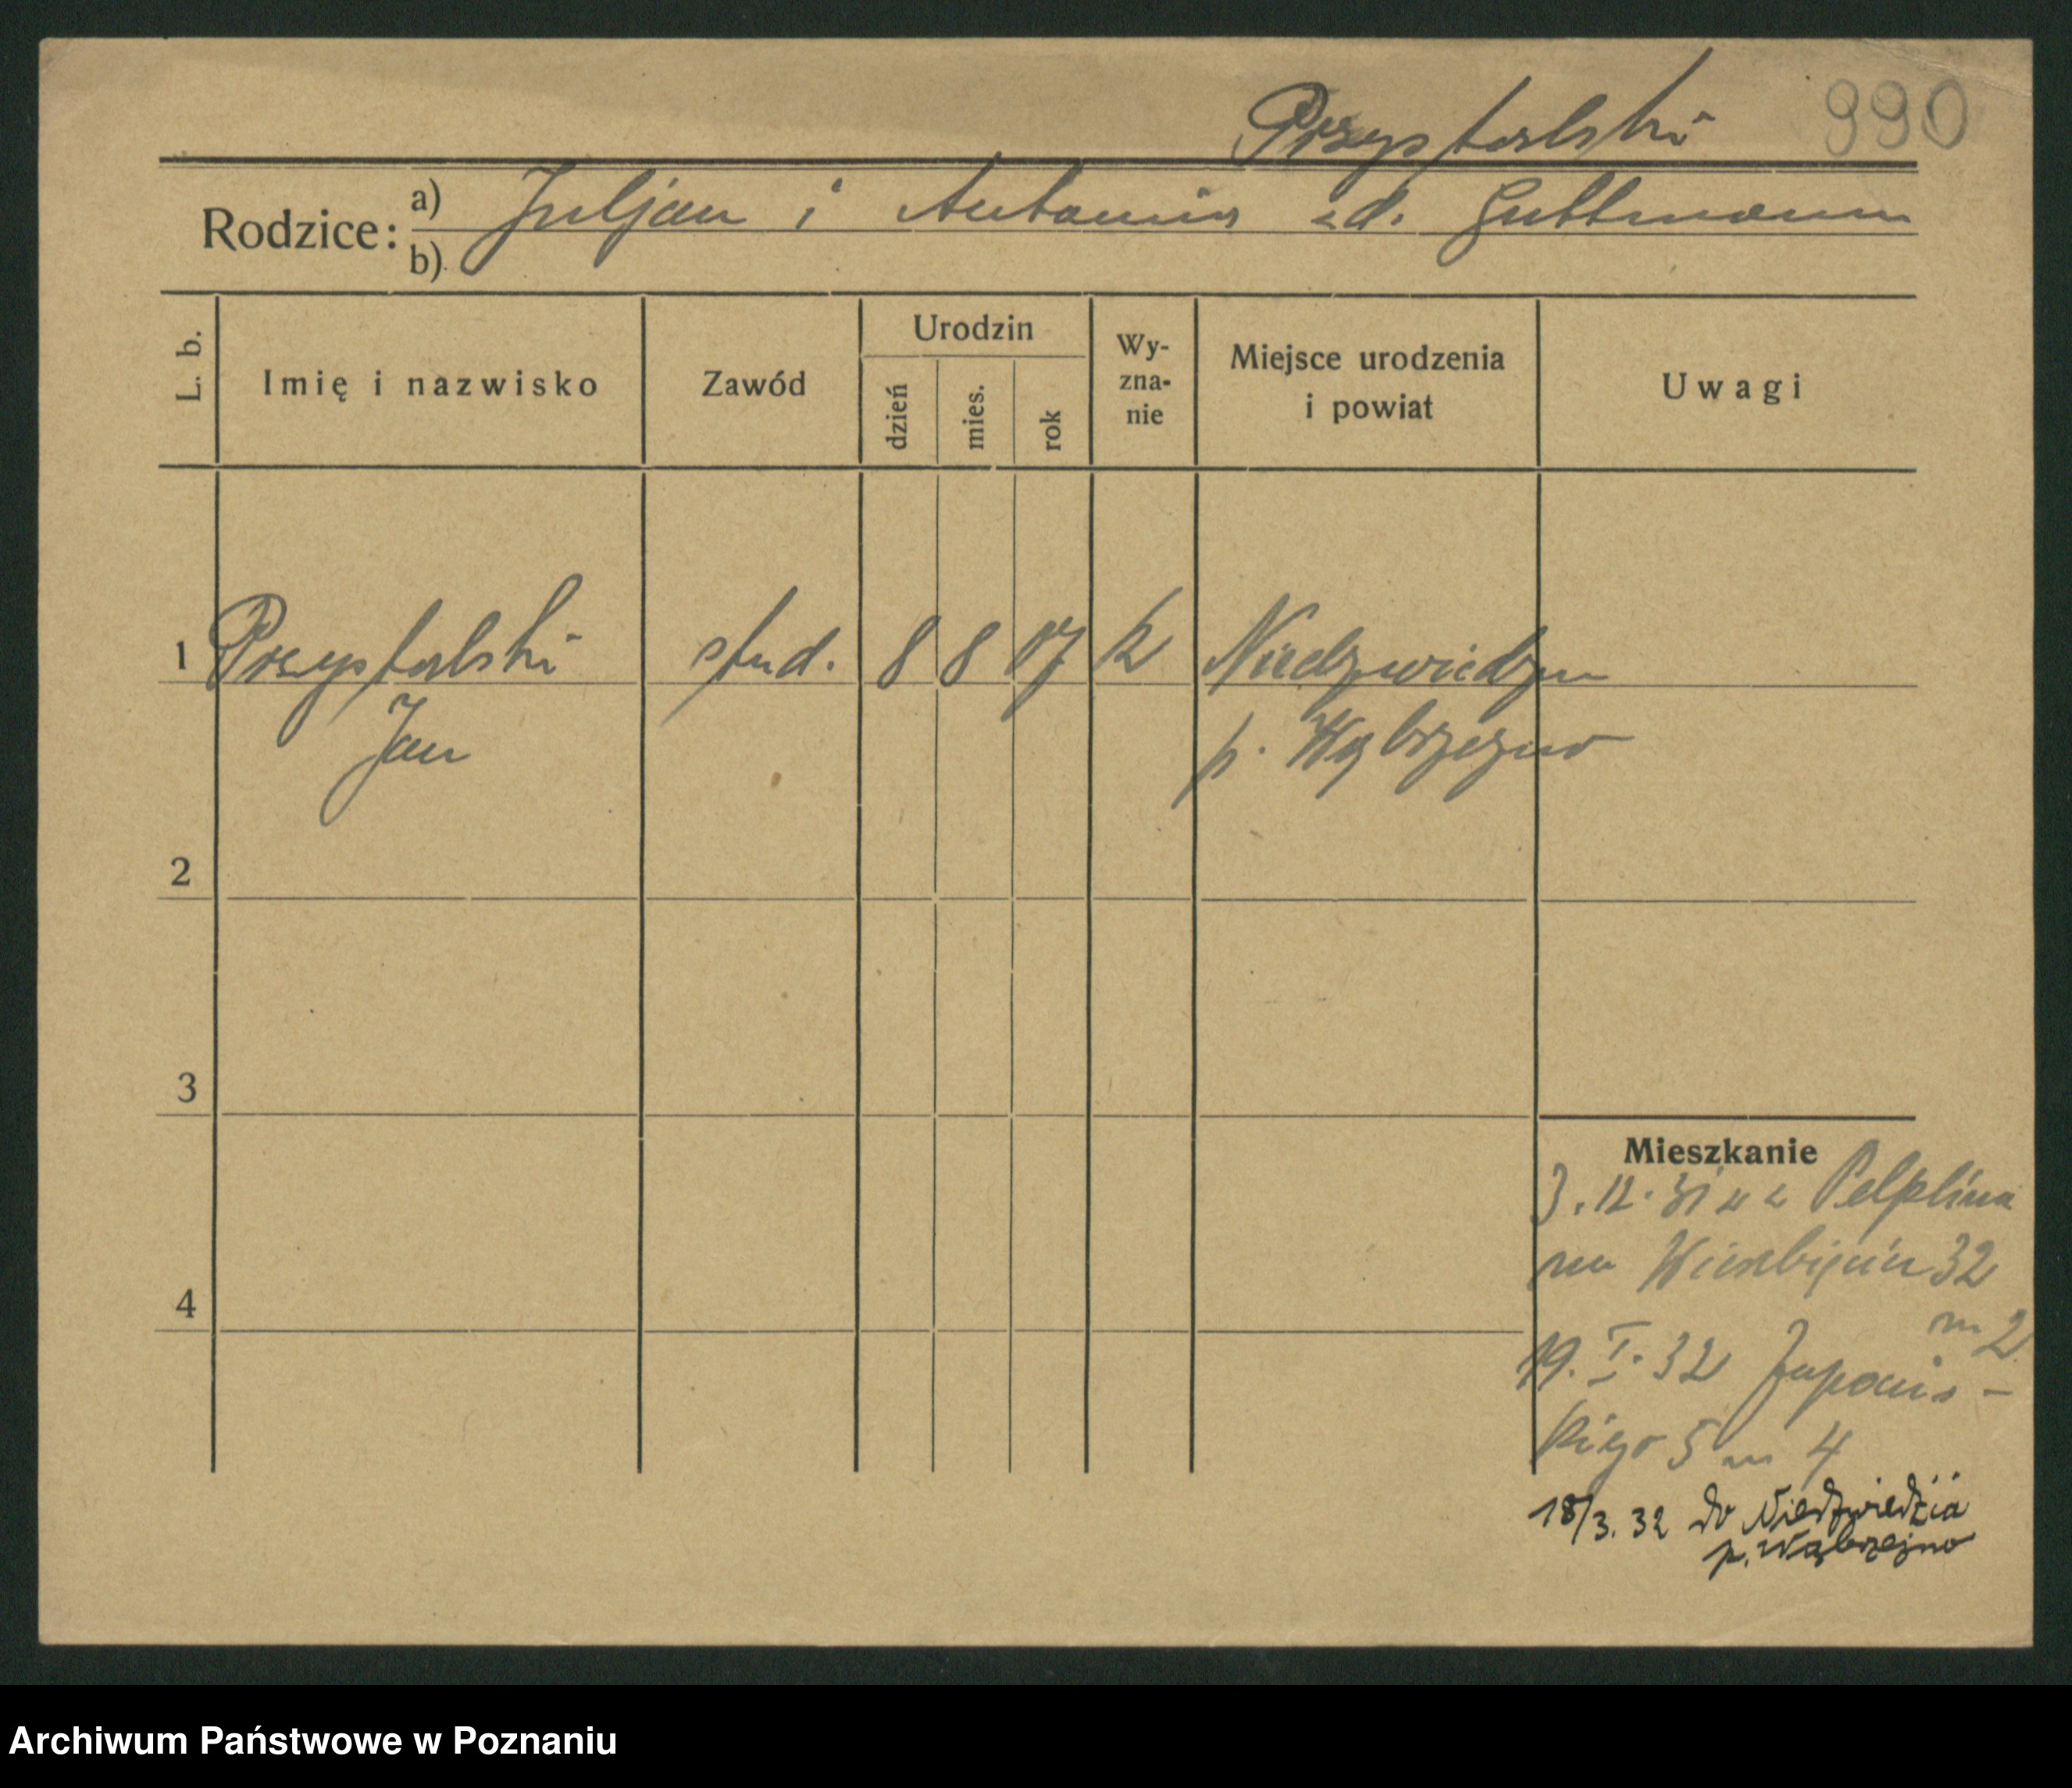 Przystalski 990
Rodzice: a) Juljan i Antonina zd. Guttmann
b)
L. b. Imię i nazwisko Zawód Urodzin dzień mies. rok Wy-zna-nie Miejsce urodzenia i powiat Uwagi
1 Przystalski stud. 8 8 07 k Niedzwiedzu
Jan p. Wąbrzezno
2
3
Mieszkanie
3.12.31 z Pelplina
na Wierzbięcin 32
m 2
4
19.I.32 Jupanis-
kiego 5 m 4
18/3.32 do Niedźwiedzia
p. Wąbrzeźno
Archiwum Państwowe w Poznaniu